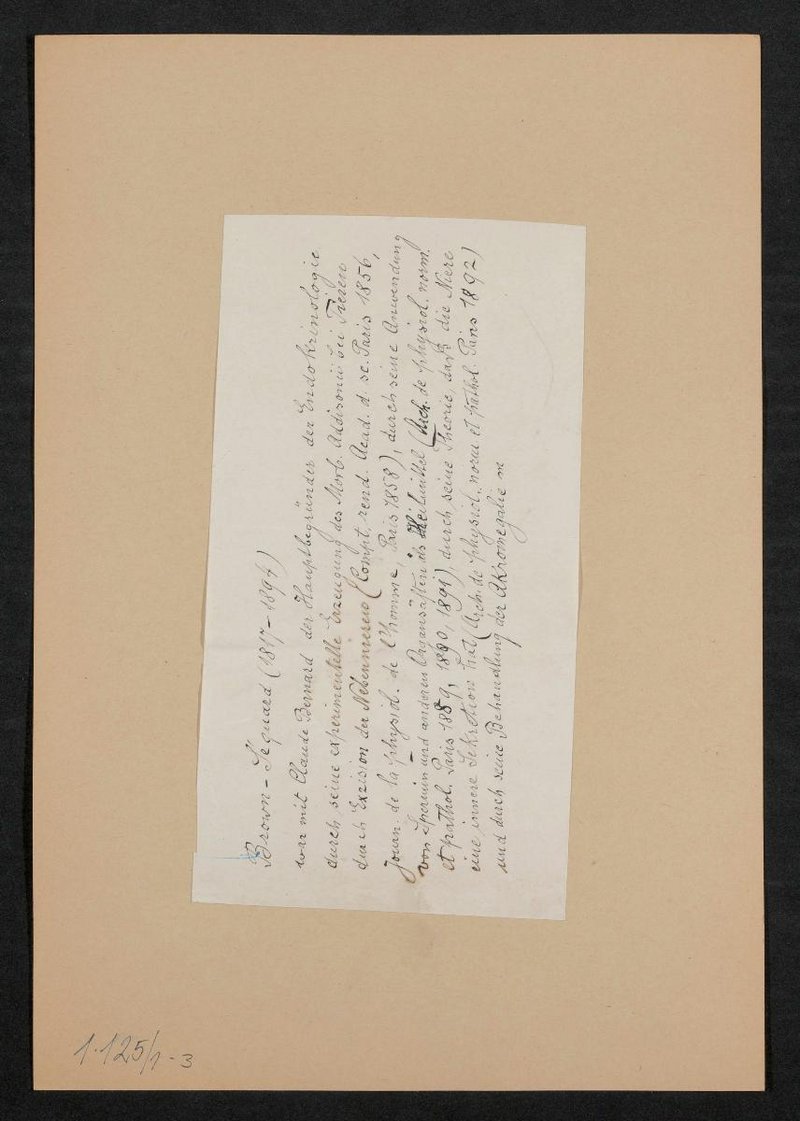 Brown-Sequard (1817-1894)
war mit Claude Bernard der Hauptbegründer der Endokrinologie
durch seine experimentelle Erzeugung des Morb. Addisonii bei Tieren
durch Exzision der Nebennieren (Compt. rend. Acad. d. sc. Paris 1856,
Journ. de la physiol. de l'homme, Paris 1858), durch seine Anwendung
von Spermin und anderen Organsäften als Heilmittel (Arch. de physiol. norm.
et pathol. Paris 1889, 1890, 1891), durch seine Theorie, daß die Niere
eine innere Sekretion hat (Arch. de physiol. norm et pathol. Paris 1892)
und durch seine Behandlung der Akromegalie m
1.125/1-3